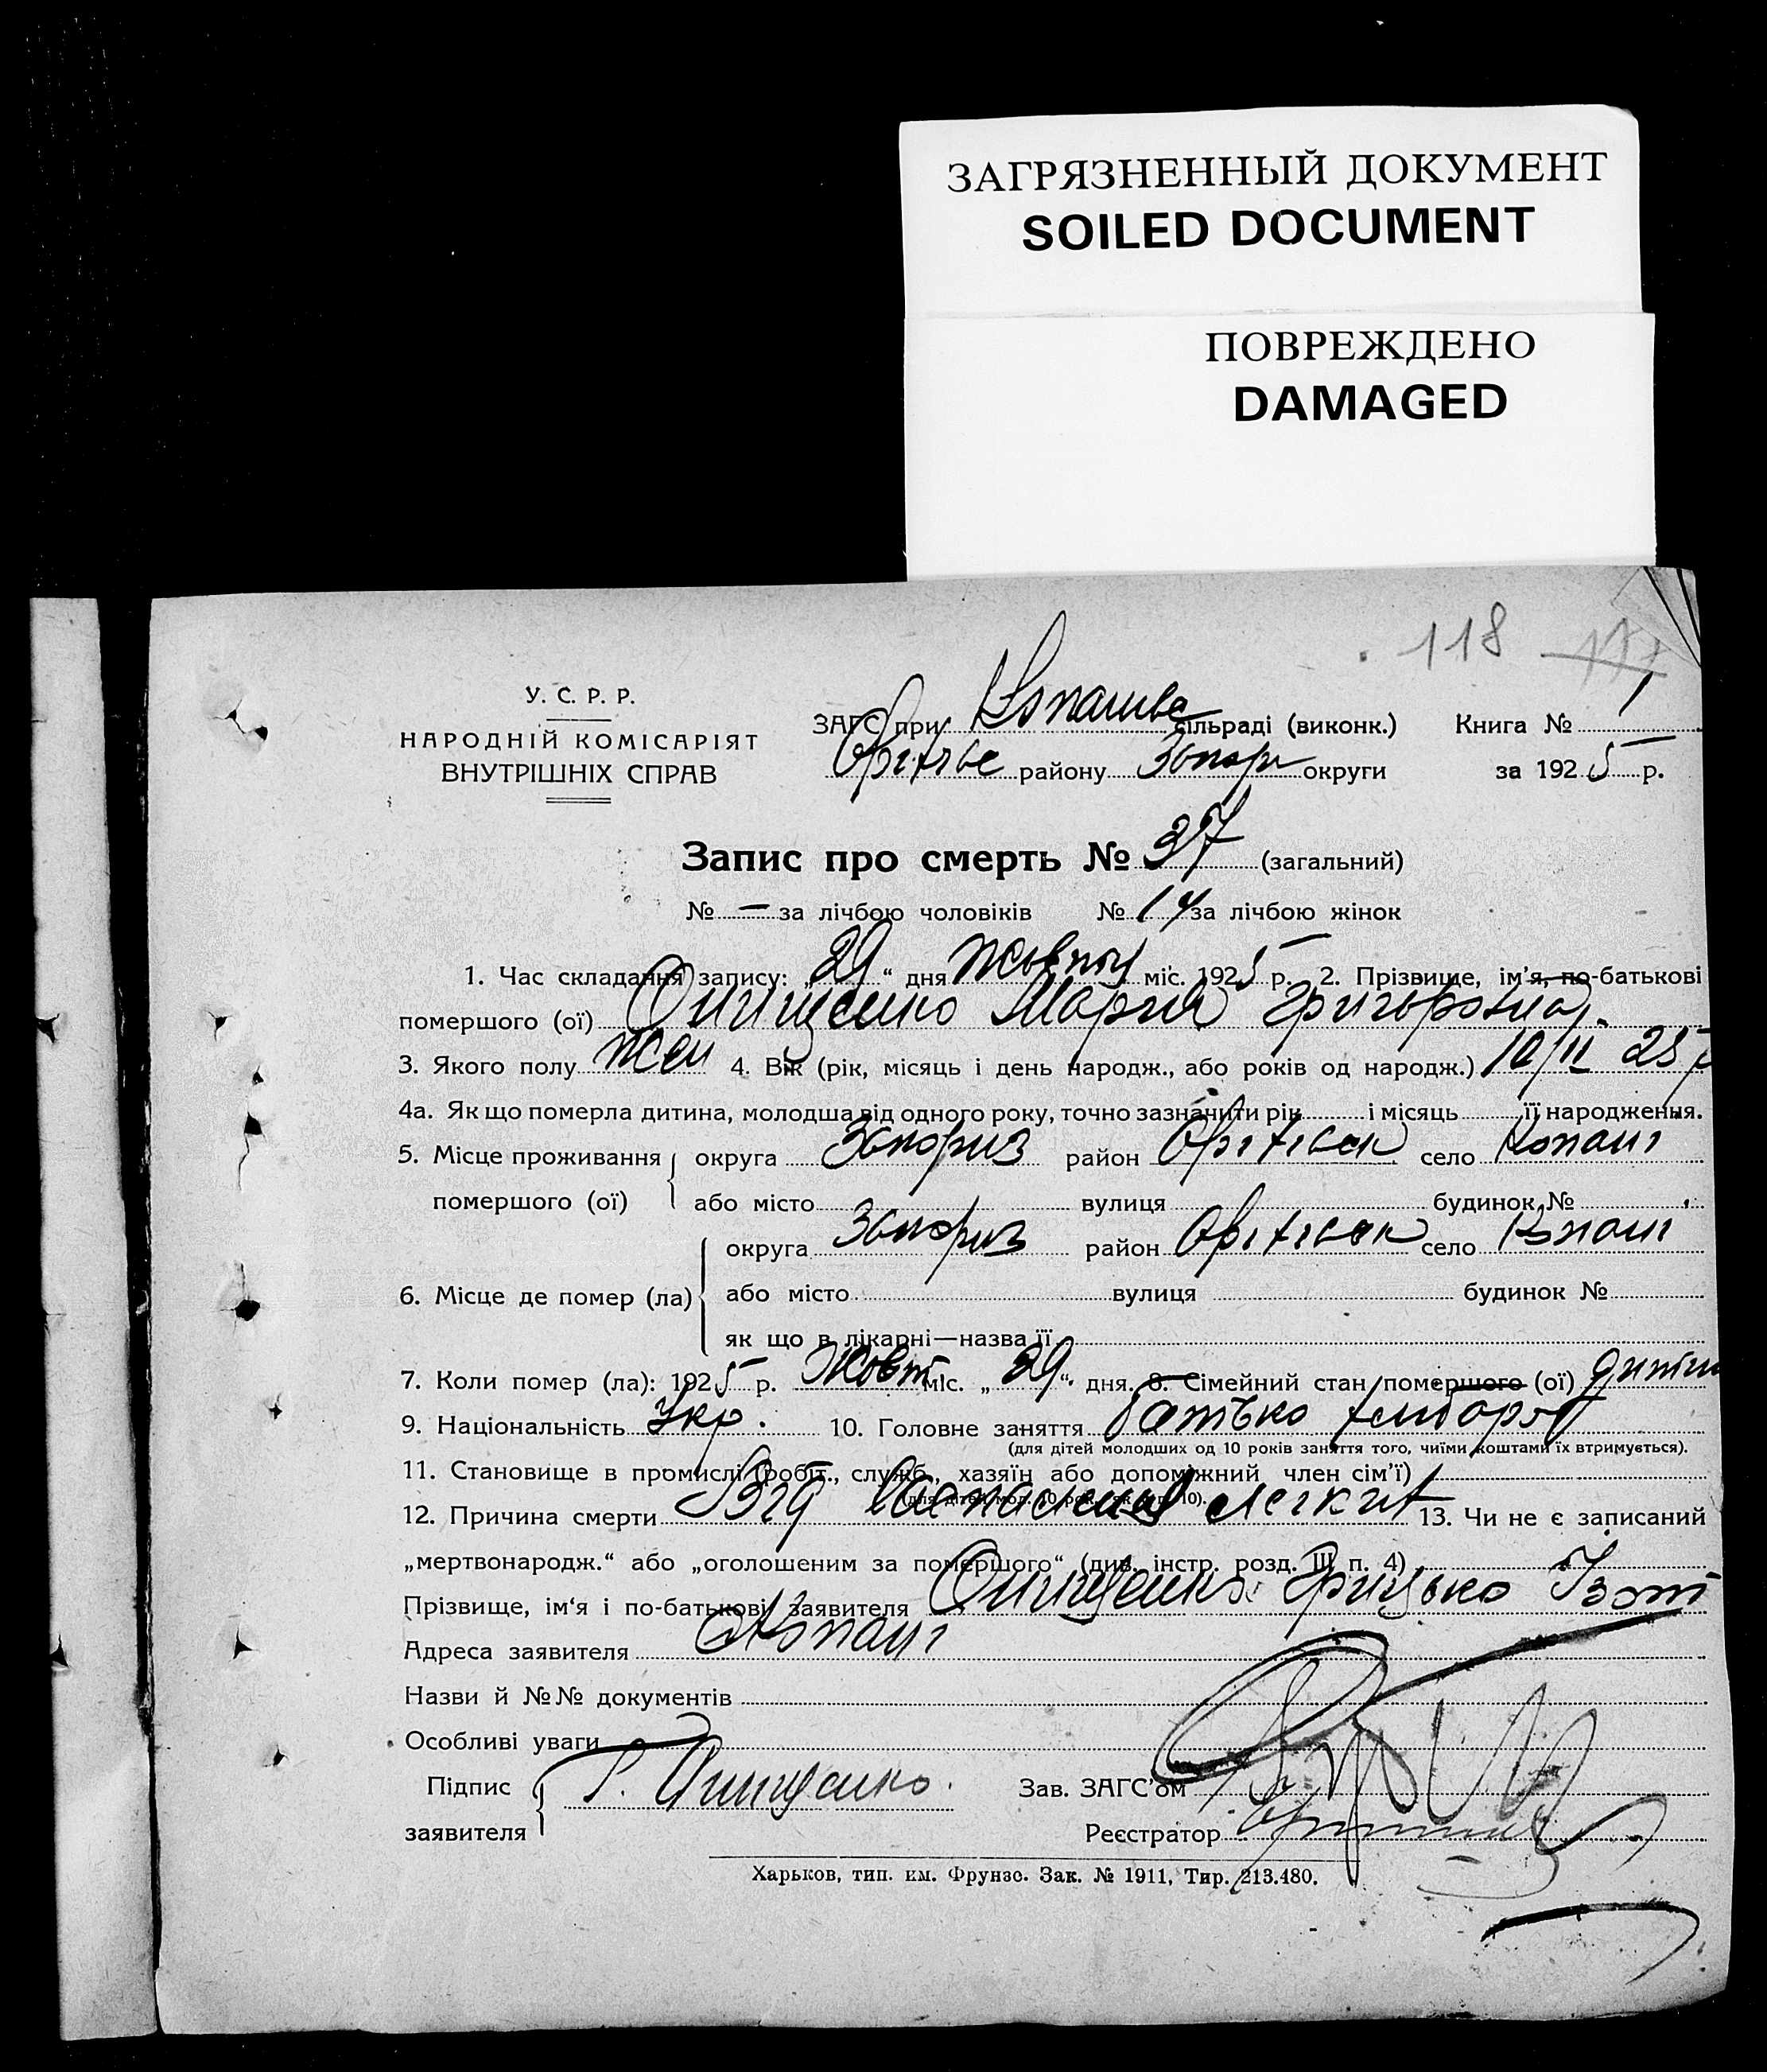 ЗАГРЯЗНЕННЫЙ ДОКУМЕНТ
SOILED DOCUMENT
ПОВРЕЖДЕНО
DAMAGED
118
У. С. Р. Р.
НАРОДНІЙ КОМІСАРІЯТ
ВНУТРІШНІХ СПРАВ
ЗАГС при сільраді (виконк.) Книга № 1
району Запор округи за 1925 р.
Запис про смерть № 37 (загальний)
№ — за лічбою чоловіків № 14 за лічбою жінок
1. Час складання запису: „29“ дня міс. 1925 р. 2. Прізвище, ім'я, по-батькові
помершого (ої) Онищенко Мария Григоровна
3. Якого полу жен 4. Вік (рік, місяць і день народж., або років од народж.) 10/II 25 р
4а. Як що померла дитина, молодша від одного року, точно зазначити рік і місяць її народження.
5. Місце проживання помершого (ої) округа Запориз район Оріхівськ село Копані
або місто вулиця будинок №
6. Місце де помер (ла) округа Запориз район Оріхівськ село Копані
або місто вулиця будинок №
як що в лікарні—назва її
7. Коли помер (ла): 1925 р. Жовт міс. „29“ дня. 8. Сімейний стан помершого (ої) дитина
9. Національність Укр. 10. Головне заняття батько хлібороб
(для дітей молодших од 10 років заняття того, чиїми коштами їх втримується).
11. Становище в промислі (робіт., служб., хазяїн або допоміжний член сім'ї)
(для дітей мол. 10 рок. як в п. 10).
12. Причина смерти Від легких 13. Чи не є записаний
„мертвонародж.“ або „оголошеним за помершого“ (див. інстр. розд. III п. 4)
Прізвище, ім'я і по-батькові заявителя Онищенко Грицько Ізот
Адреса заявителя Копані
Назви й №№ документів
Особливі уваги
Підпис заявителя Г. Онищенко. Зав. ЗАГС'ом
Реєстратор
Харьков, тип. им. Фрунзе. Зак. № 1911, Тир. 213.480.